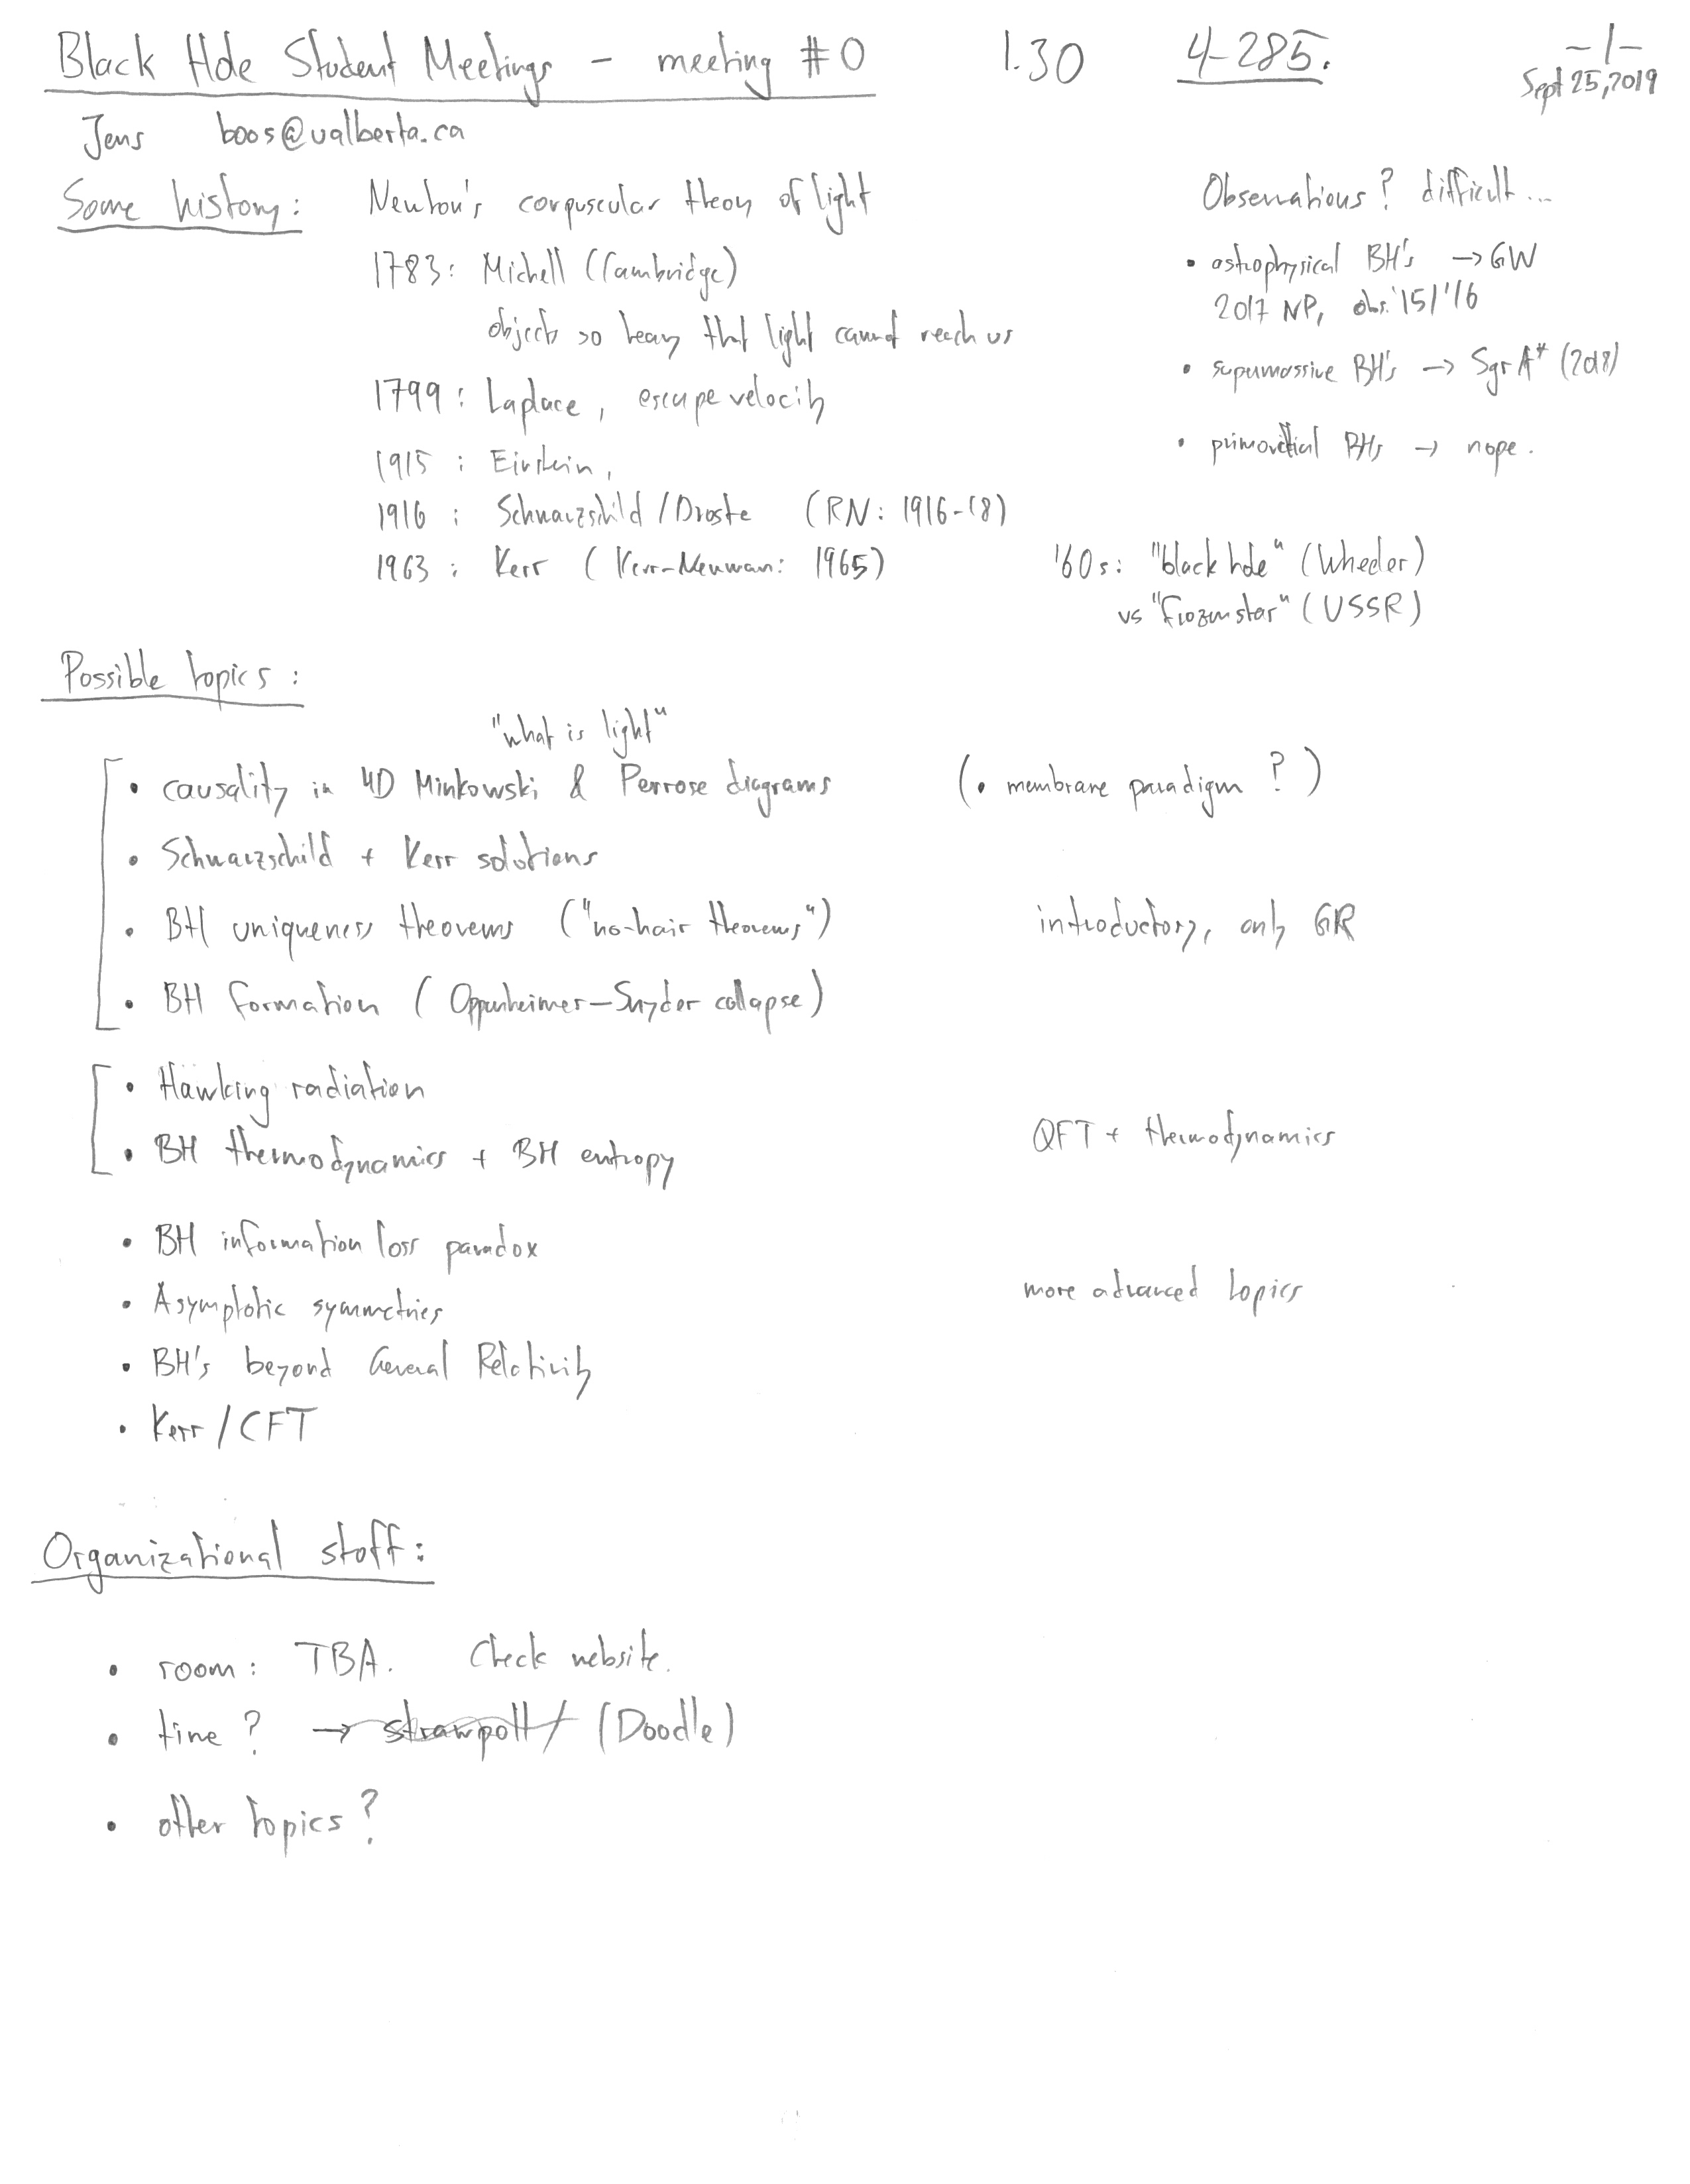 Black Hole Student Meetings - meeting #0 1.30 4-285. -1-
Sept 25, 2019
Jens boos@ualberta.ca
Some history: Newton's corpuscular theory of light
1783: Michell (Cambridge)
objects so heavy that light cannot reach us
1799: Laplace, escape velocity
1915: Einstein,
1916: Schwarzschild/Droste (RN: 1916-18)
1963: Kerr (Kerr-Newman: 1965)
Observations? difficult...
• astrophysical BH's → GW
2017 NP, obs. '15/'16
• supermassive BH's → Sgr A* (2018)
• primordial BHs → nope.
'60s: "black hole" (Wheeler)
vs "frozen star" (USSR)
Possible topics:
"what is light"
• causality in 4D Minkowski & Penrose diagrams (• membrane paradigm?)
• Schwarzschild + Kerr solutions
• BH uniqueness theorems ("no-hair theorems") introductory, only GR
• BH formation (Oppenheimer-Snyder collapse)
• Hawking radiation
• BH thermodynamics + BH entropy QFT + thermodynamics
• BH information loss paradox
• Asymptotic symmetries more advanced topics
• BH's beyond General Relativity
• Kerr/CFT
Organizational stuff:
• room: TBA. Check website.
• time? → strawpoll/ (Doodle)
• other topics?